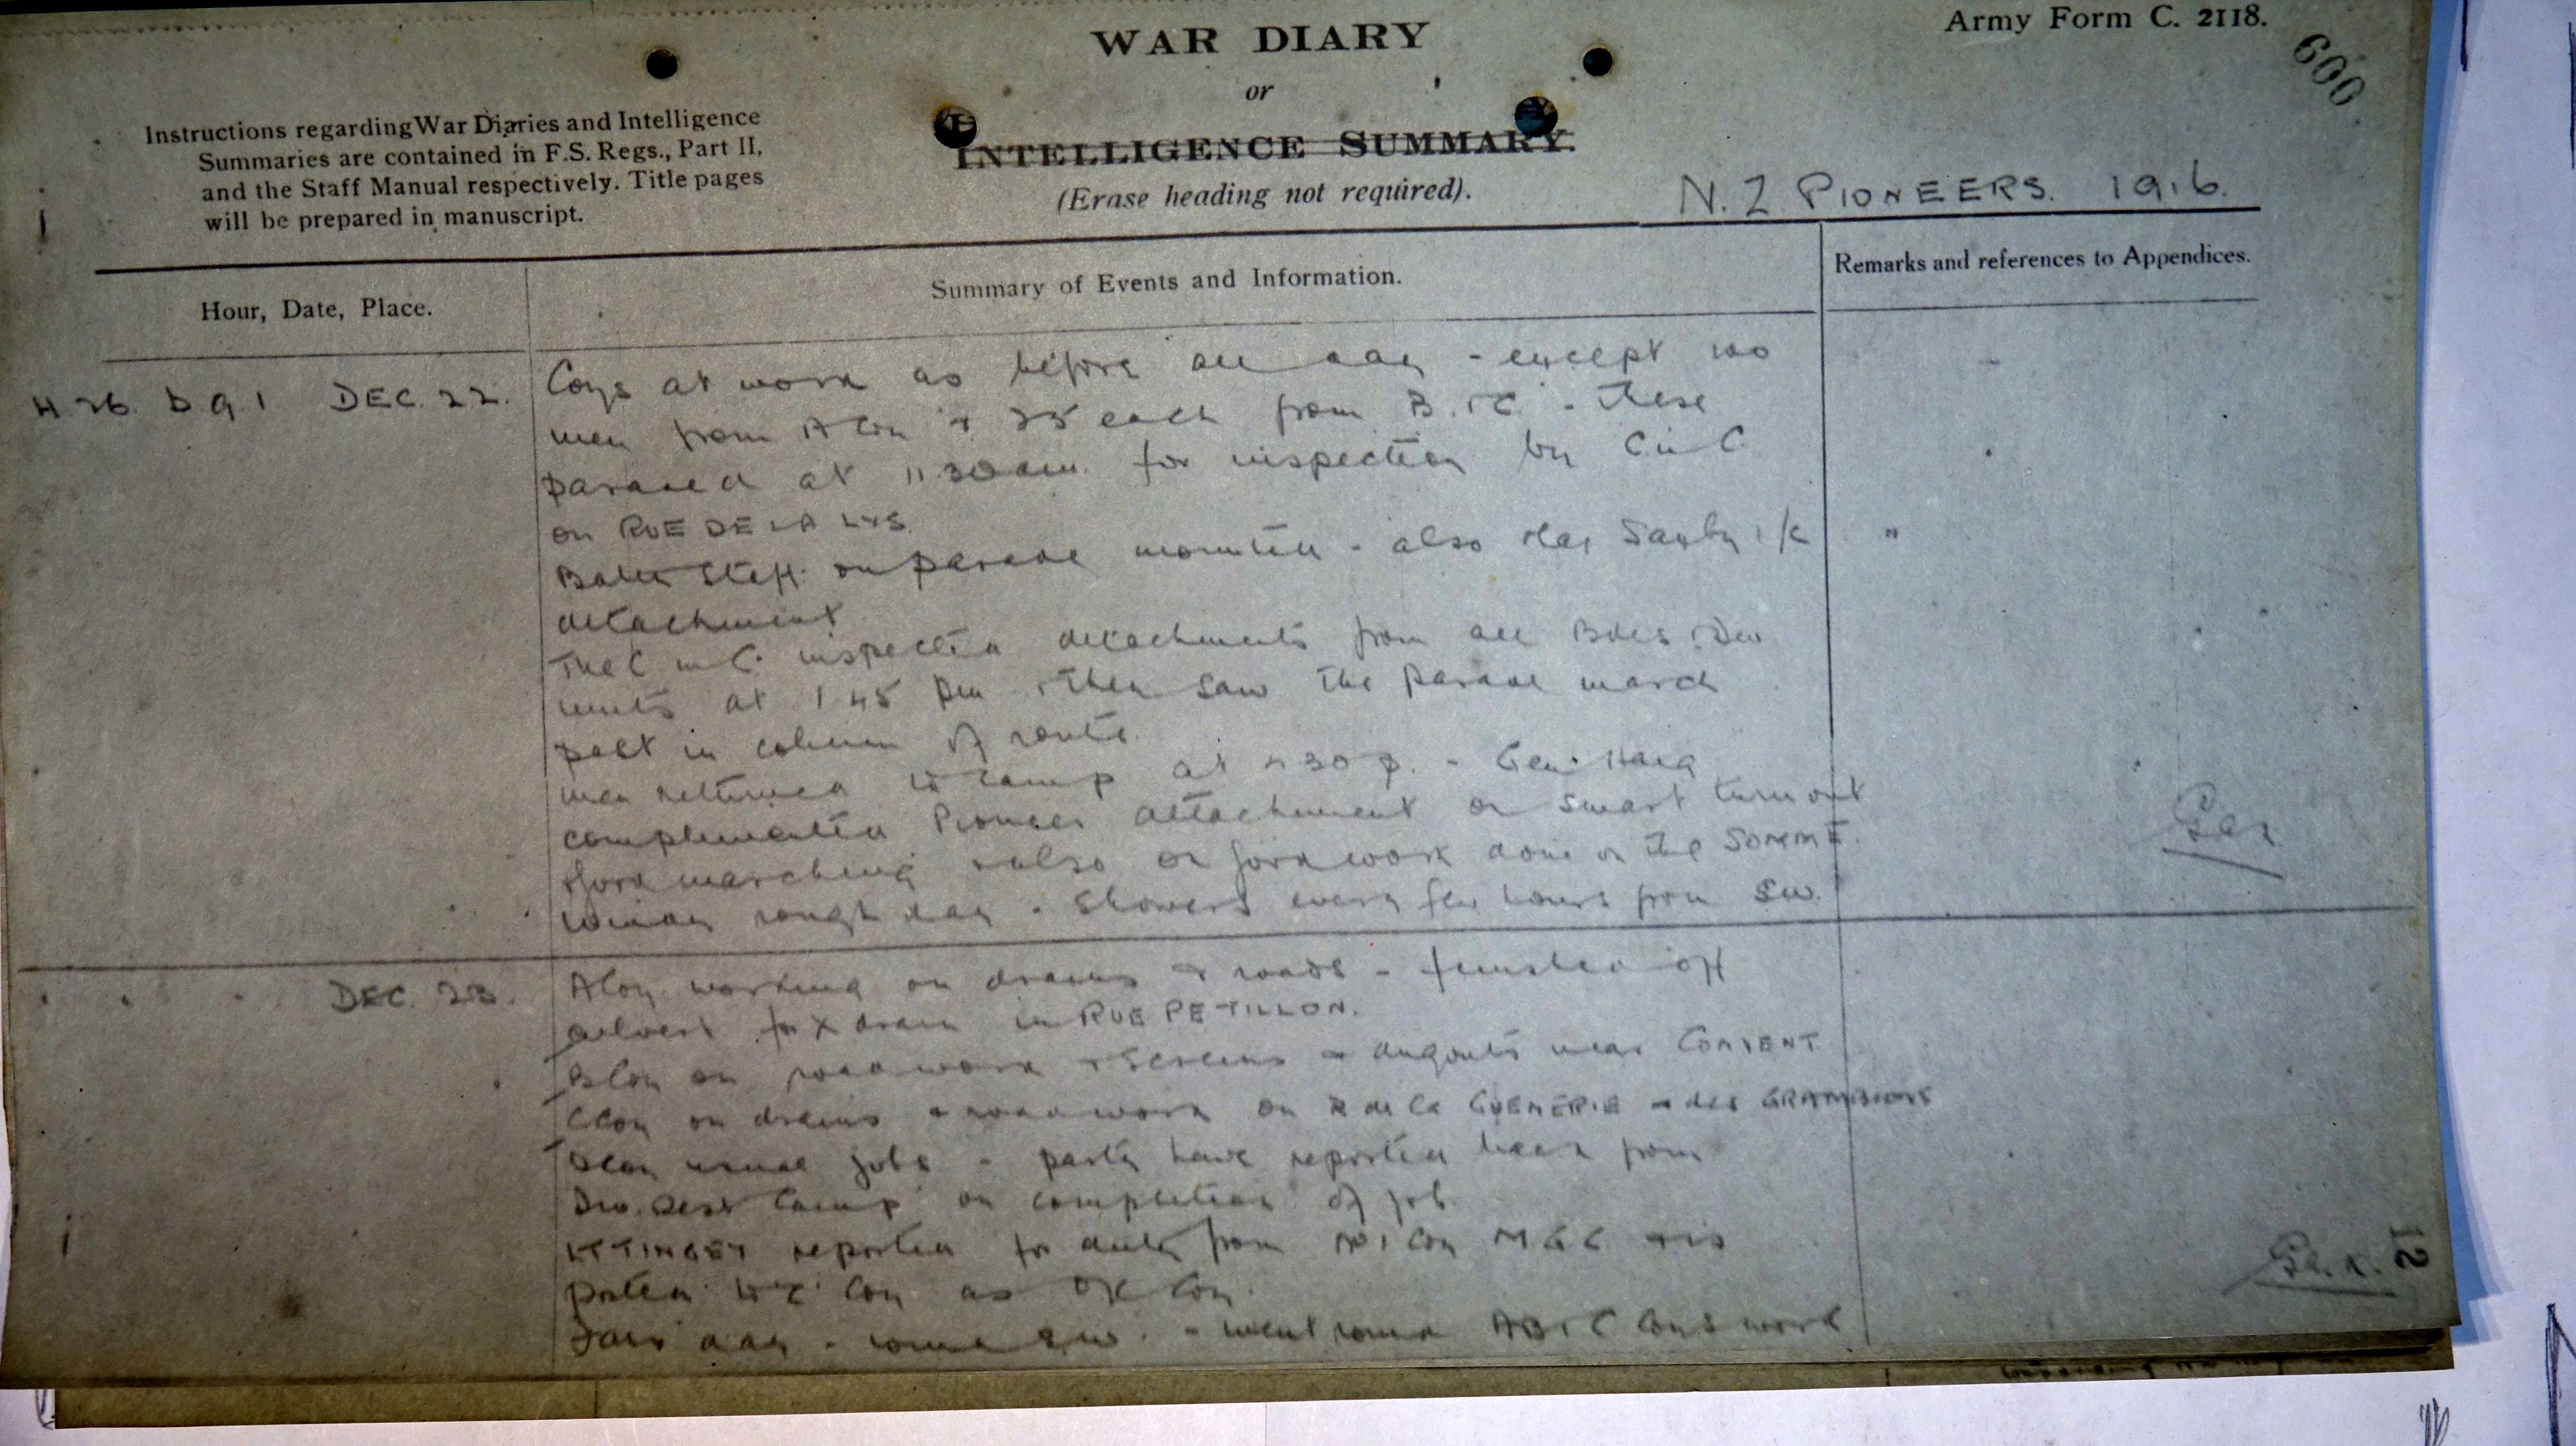 Army Form C. 2118.
600
WAR DIARY
or
INTELLIGENCE SUMMARY.
(Erase heading not required).
Instructions regarding War Diaries and Intelligence
Summaries are contained in F.S. Regs., Part II,
and the Staff Manual respectively. Title pages
will be prepared in manuscript.
N.Z PIONEERS. 1916.
Hour, Date, Place.
Summary of Events and Information.
Remarks and references to Appendices.
H.26. b 9.1 DEC. 22.
Coys at work as before all day - except 100
men from A Coy & 25 each from B. & C. - These
paraded at 11 30 am. for inspection by C in C
on RUE DE LA LYS.
Battn Staff on parade mounted - also Maj Saxby i/c
detachment
The C in C. inspected detachments from all Bdes & Div
units at 1 45 pm & then saw the parade march
past in column of route.
Men returned to camp at 30 p. - Gen. Haig
complimented Pioneer detachment on smart turn out
& good marching & also on good work done on the SOMME.
Windy rough day - Showers every few hours from SW.
" " " DEC. 23.
A Coy working on drains & roads - finished off
culvert for X drain in RUE PETILLON.
B Coy on road work & screens & dugouts near CONVENT
C Coy on drains & road work on R de la GUENERIE & des
D Coy usual jobs - party have reported back from
Div. Rest Camp on completion of job
LT TINGEY reported for duty from No 1 Coy M G C & is
posted to C Coy as O/C Coy.
Fair day - SW. - went round A B & C Coys work
12